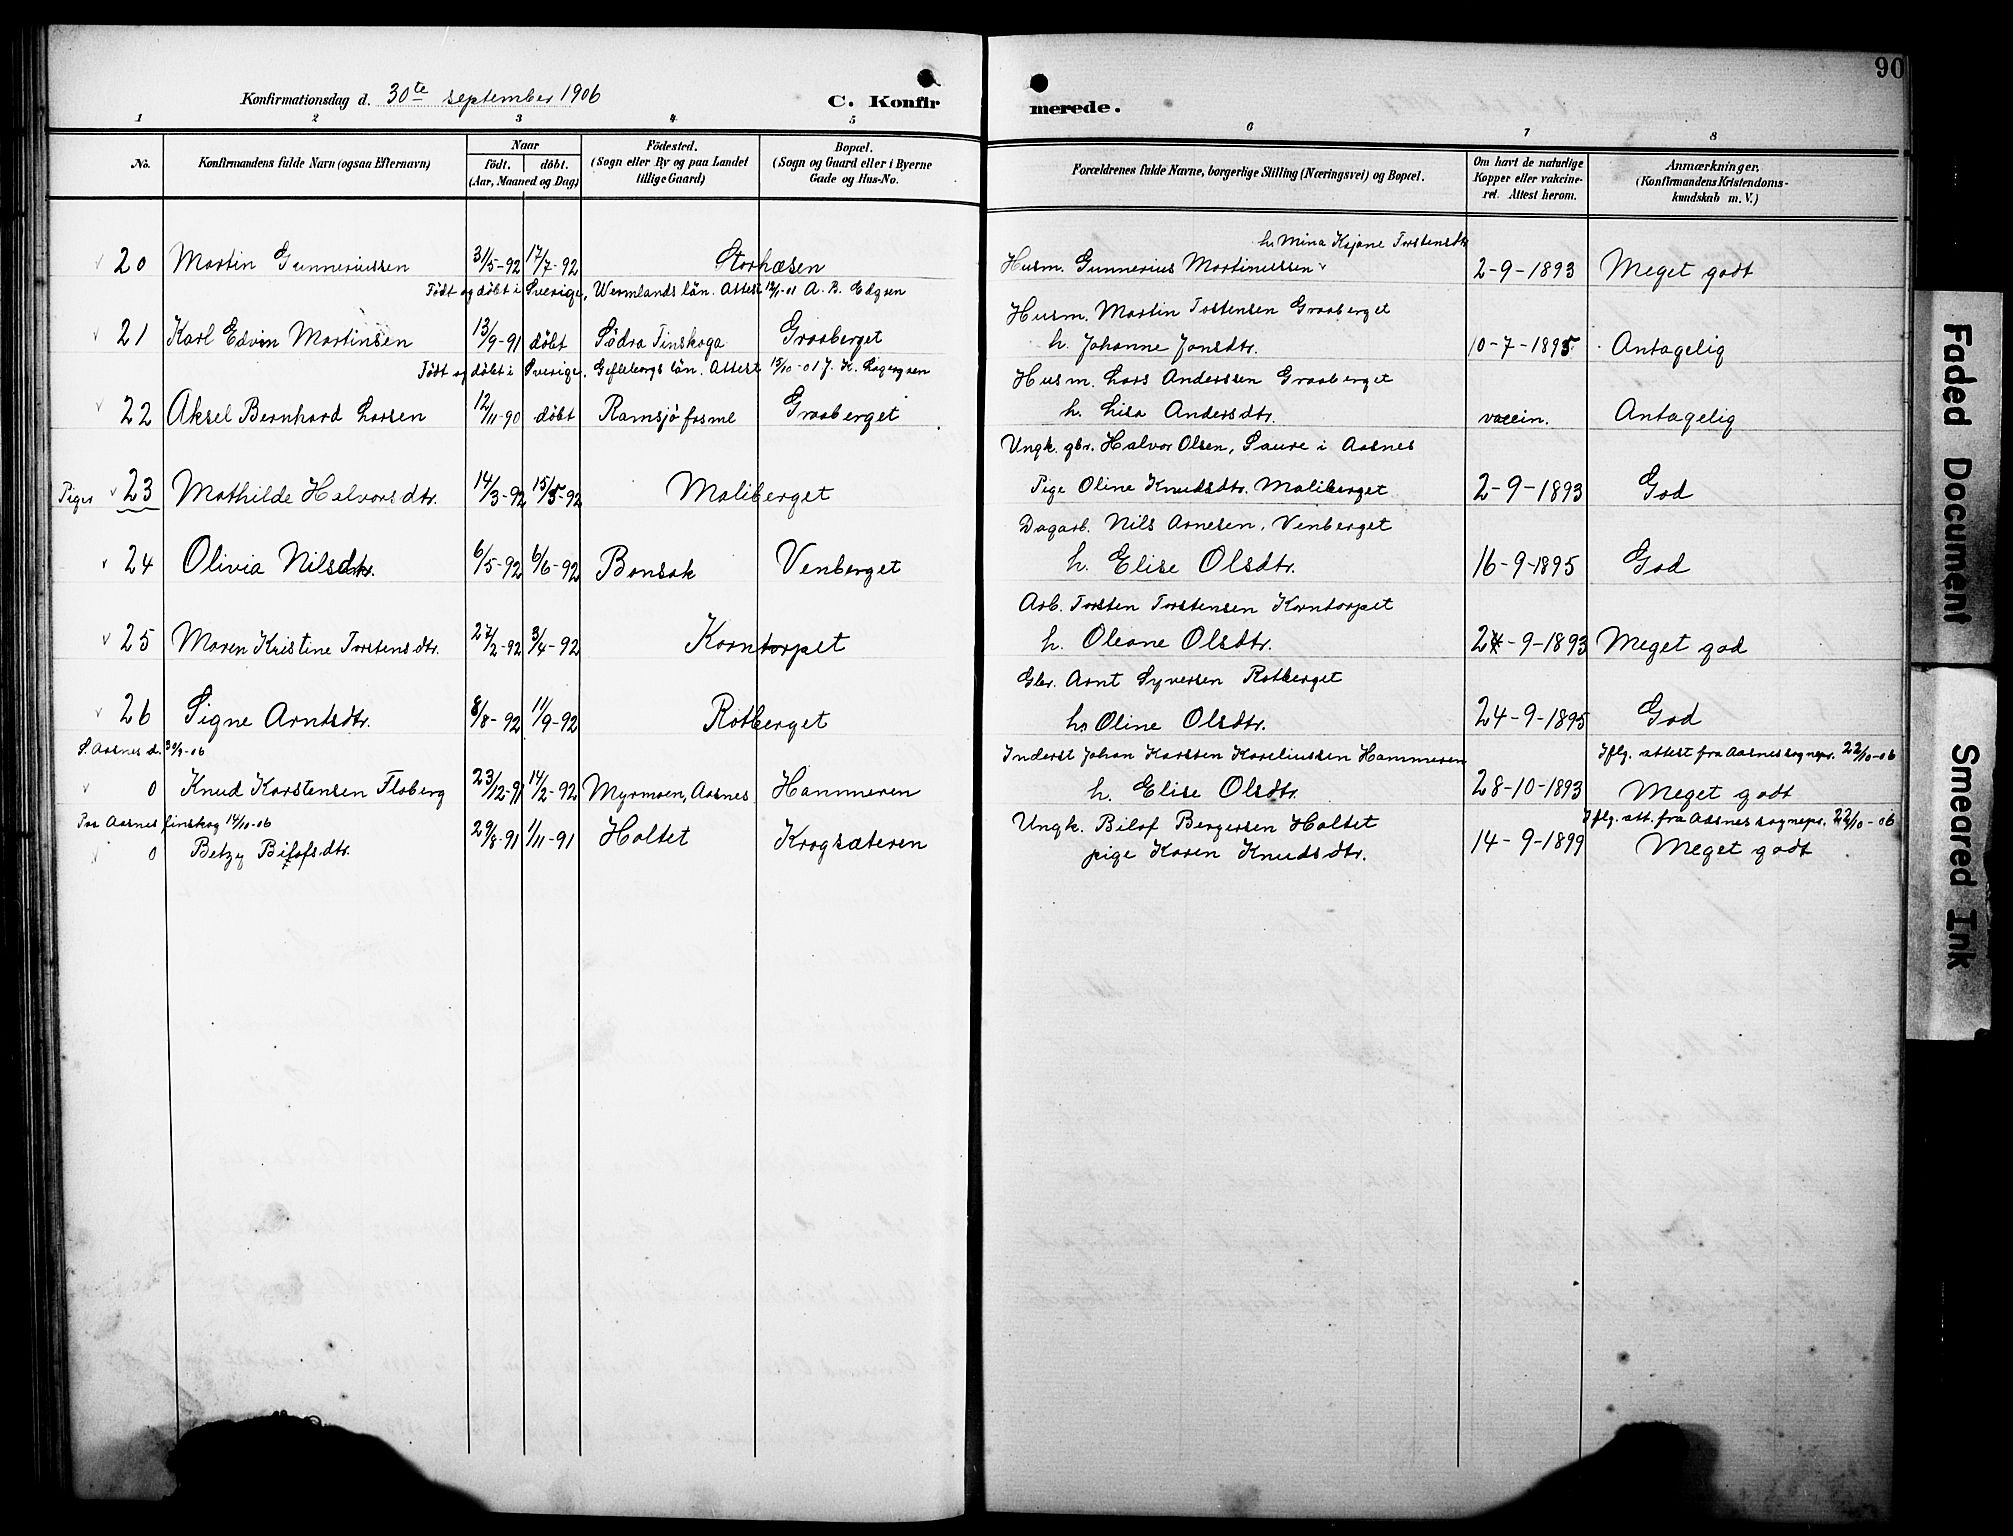 Konfirmationsdag d. 30te september 1906
C. Konfirmerede.
90
1 2 3 4 5 6 7 8
No.
Konfirmandens fulde Navn (ogsaa Efternavn)
Naar
født. døbt.
(Aar, Maaned og Dag)
Fødested.
(Sogn eller By og paa Landet
tillige Gaard)
Bopæl.
(Sogn og Gaard eller i Byerne
Gade og Hus-No.
Forældrenes fulde Navne, borgerlige Stilling (Næringsvei) og Bopæl.
Om havt de naturlige
Kopper eller vakcineret. Attest herom.
Anmærkninger.
(Konfirmandens Kristendomskundskab m. V.)
h. Mina Kajane Torstensdtr
20 Martin Gunneriussen 31/5-92 17/7-92 Storhæsen Husm. Gunnerius Martinussen 2-9-1893 Meget godt
Født og døbt i Sverige, Wermlands län. Attest 12/1-01 A. B. Edgren
Husm. Martin Tostensen Graaberget
21 Karl Edvin Martinsen 13/9-91 døbt Södra Finskoga Graaberget h. Johanne Jonsdtr. 10-7-1895 Antagelig
Født og døbt i Sverige, Gefleborgs län. Attest 15/10-01 J. K. Lagergren
Husm. Lars Anderssen Graaberget
22 Aksel Bernhard Larsen 12/11-90 døbt Ramsjö Graaberget h. Lisa Andersdtr. vaccin. Antagelig
Ungk. gbr. Halvor Olsen, Saure i Aasnes
Piger 23 Mathilde Halvorsdtr. 14/3-92 15/5-92 Maliberget Pige Oline Knudsdtr. Maliberget 2-9-1893 God
Dagarb. Nils Arnesen, Venberget
24 Olivia Nilsdtr. 6/5-92 6/6-92 Bonsak Venberget h. Elise Olsdtr. 16-9-1895 God
Arb. Torsten Torstensen Korntorpet
25 Maren Kristine Torstensdtr. 27/2-92 3/4-92 Korntorpet h. Oleane Olsdtr. 24-9-1893 Meget god
Gbr. Arnt Syversen Rotberget
26 Signe Arntsdtr. 8/8-92 11/9-92 Rotberget h. Oline Olsdtr. 24-9-1895 God
S. Aasnes d. 30/9-06 Inderst Johan Karsten Koreliussen Hammeren Iflg. attest fra Aasnes sognepr. 22/10-06
0 Knud Karstensen Floberg 23/12-91 14/2-92 Myrmoen, Aasnes Hammeren h. Elise Olsdtr. 28-10-1893 Meget godt
Paa Aasnes finskog 14/10-06 Ungk. Bilof Bergersen Holtet Iflg. att. fra Aasnes sognepr. 22/10-06
0 Betzy Bilofsdtr. 29/8-91 1/11-91 Holtet Krogsæteren pige Karen Knudsdtr. 14-9-1899 Meget godt
Faded Document
Smeared Ink